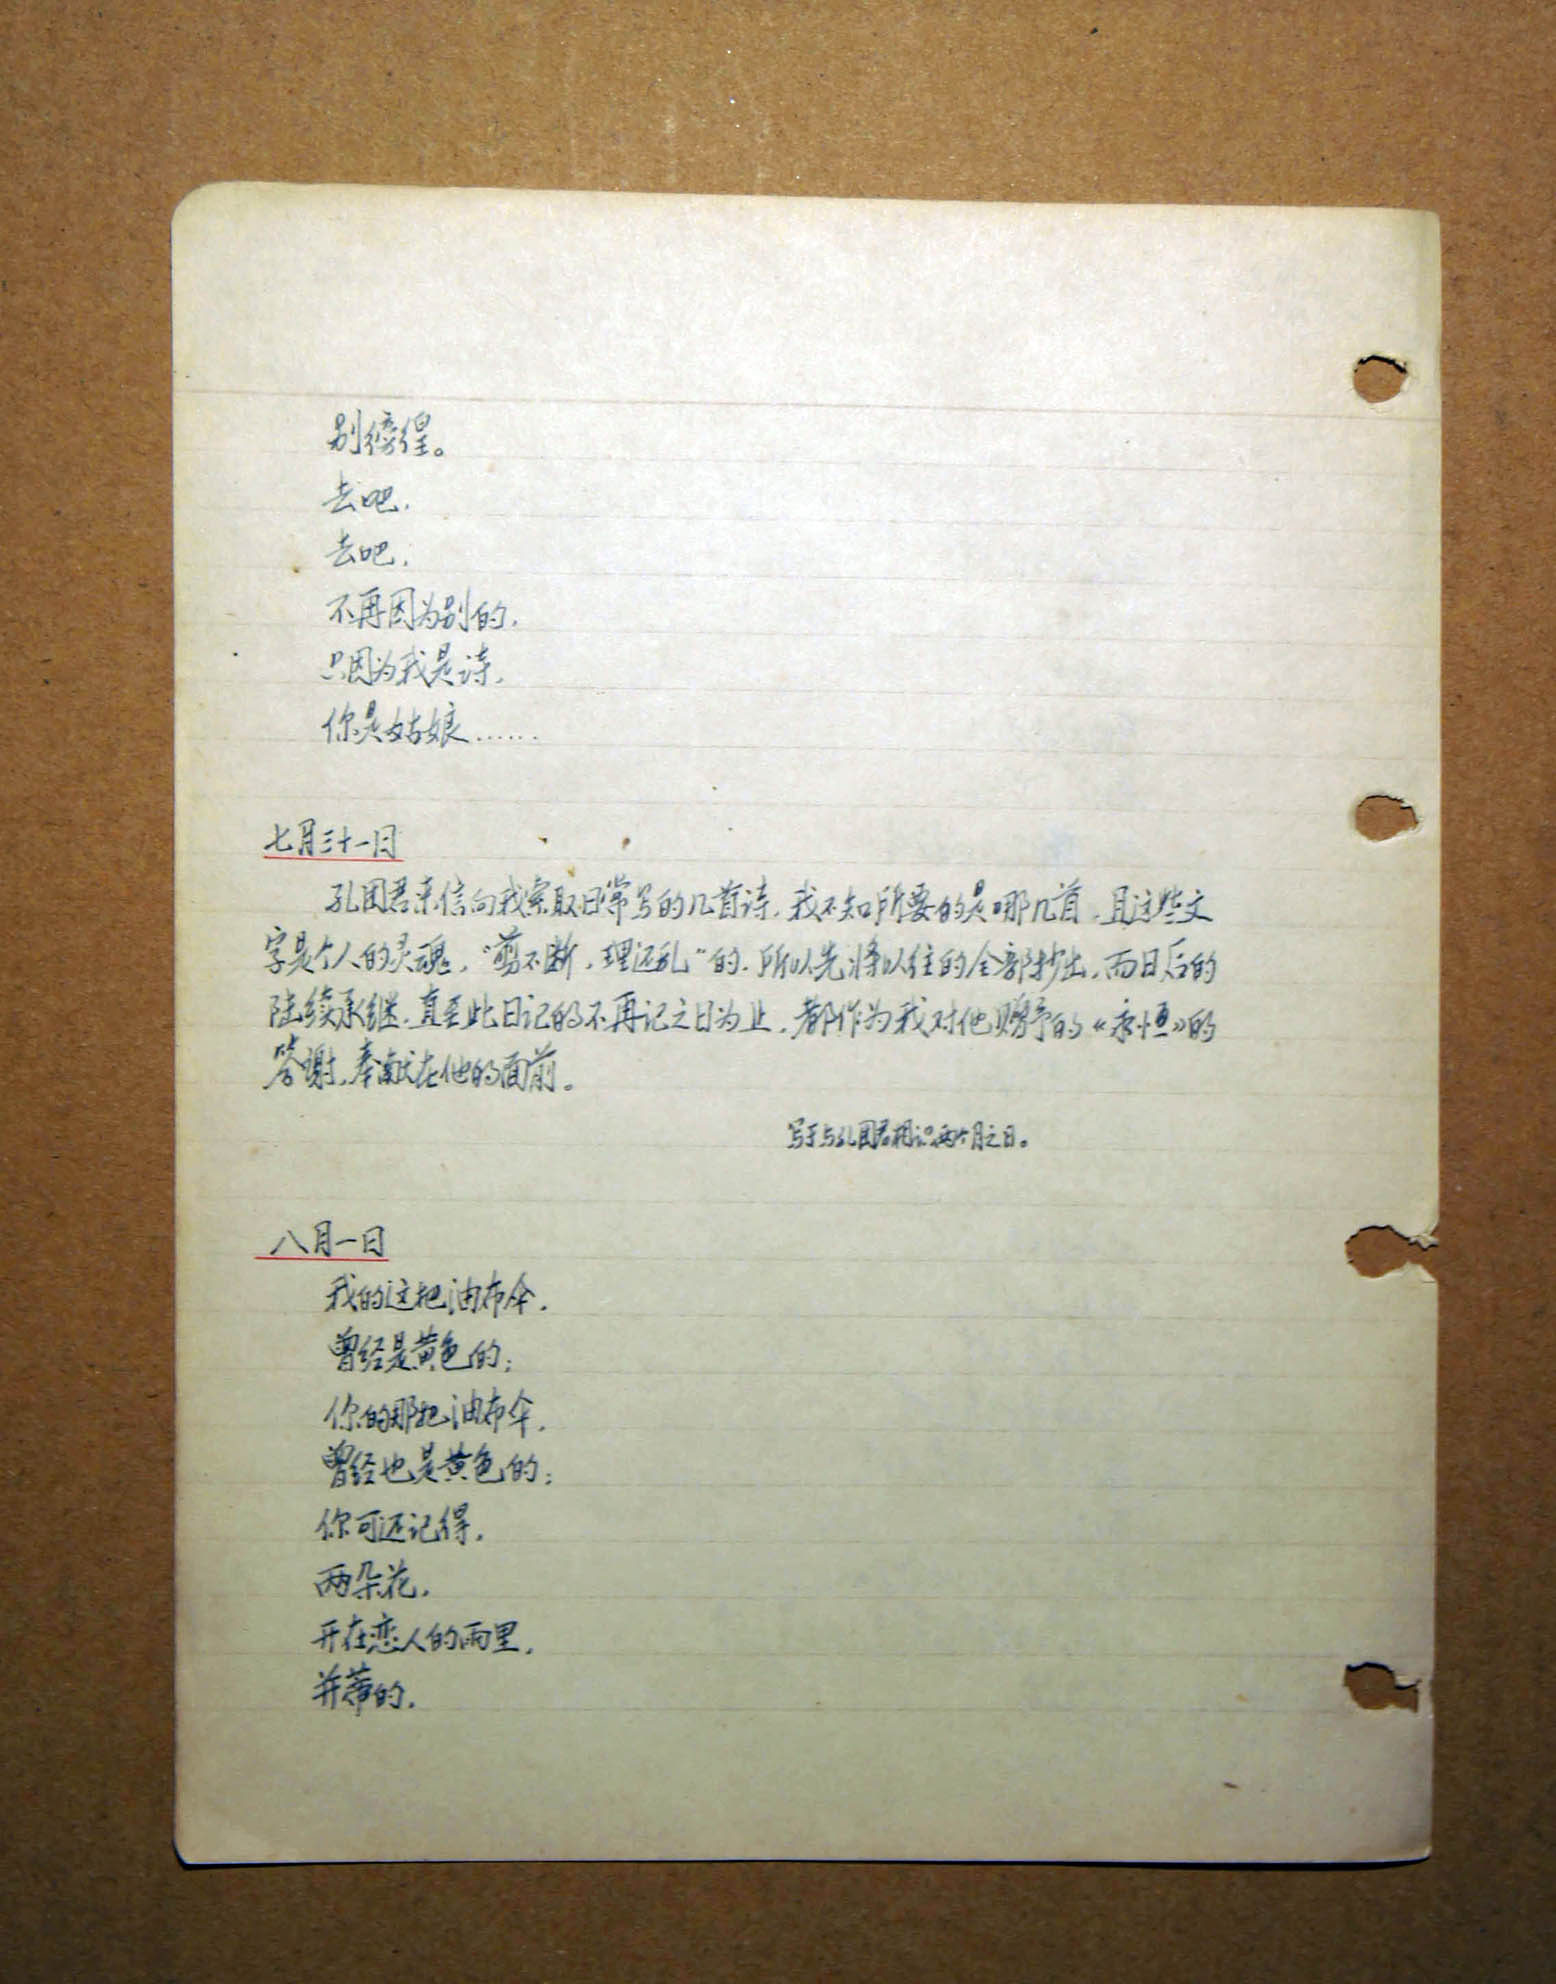 别徬徨。
去吧，
去吧，
不再因为别的，
只因为我是诗，
你是姑娘……
七月三十一日
孔团君来信向我索取日常写的几首诗，我不知所要的是哪几首，且这些文
字是个人的灵魂，“剪不断，理还乱”的，所以先将以往的全部抄出，而日后的
陆续承继，直至此日记的不再记之日为止，都作为我对他赠予的《永恒》的
答谢，奉献在他的面前。
写于与孔团君相识两个月之日。
八月一日
我的这把油布伞，
曾经是黄色的；
你的那把油布伞，
曾经也是黄色的；
你可还记得，
两朵花，
开在恋人的雨里，
并蒂的，